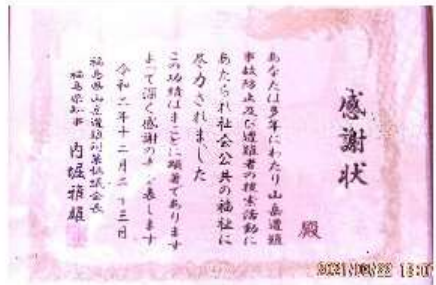 感謝状
殿
あなたは多年にわたり山岳遭難
事故防止及び遭難者の捜索活動に
あたられ社会公共の福祉に
尽力されました
この功績はまことに顕著であります
よって深く感謝の意を表します
令和二年十二月二十三日
福島県山岳遭難対策協議会会長
福島県知事 内堀雅雄